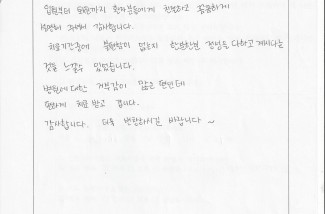 입원부터 퇴원까지 환자분들에게 친절하고 꼼꼼하게
설명해 주셔서 감사합니다.
치료기간중에 불편함이 없는지 한분한분 정성을 다하고 계시다는
것을 느낄수 있었습니다.
병원에 대한 거부감이 많은 편인데
편하게 치료 받고 갑니다.
감사합니다. 더욱 번창하시길 바랍니다 ~